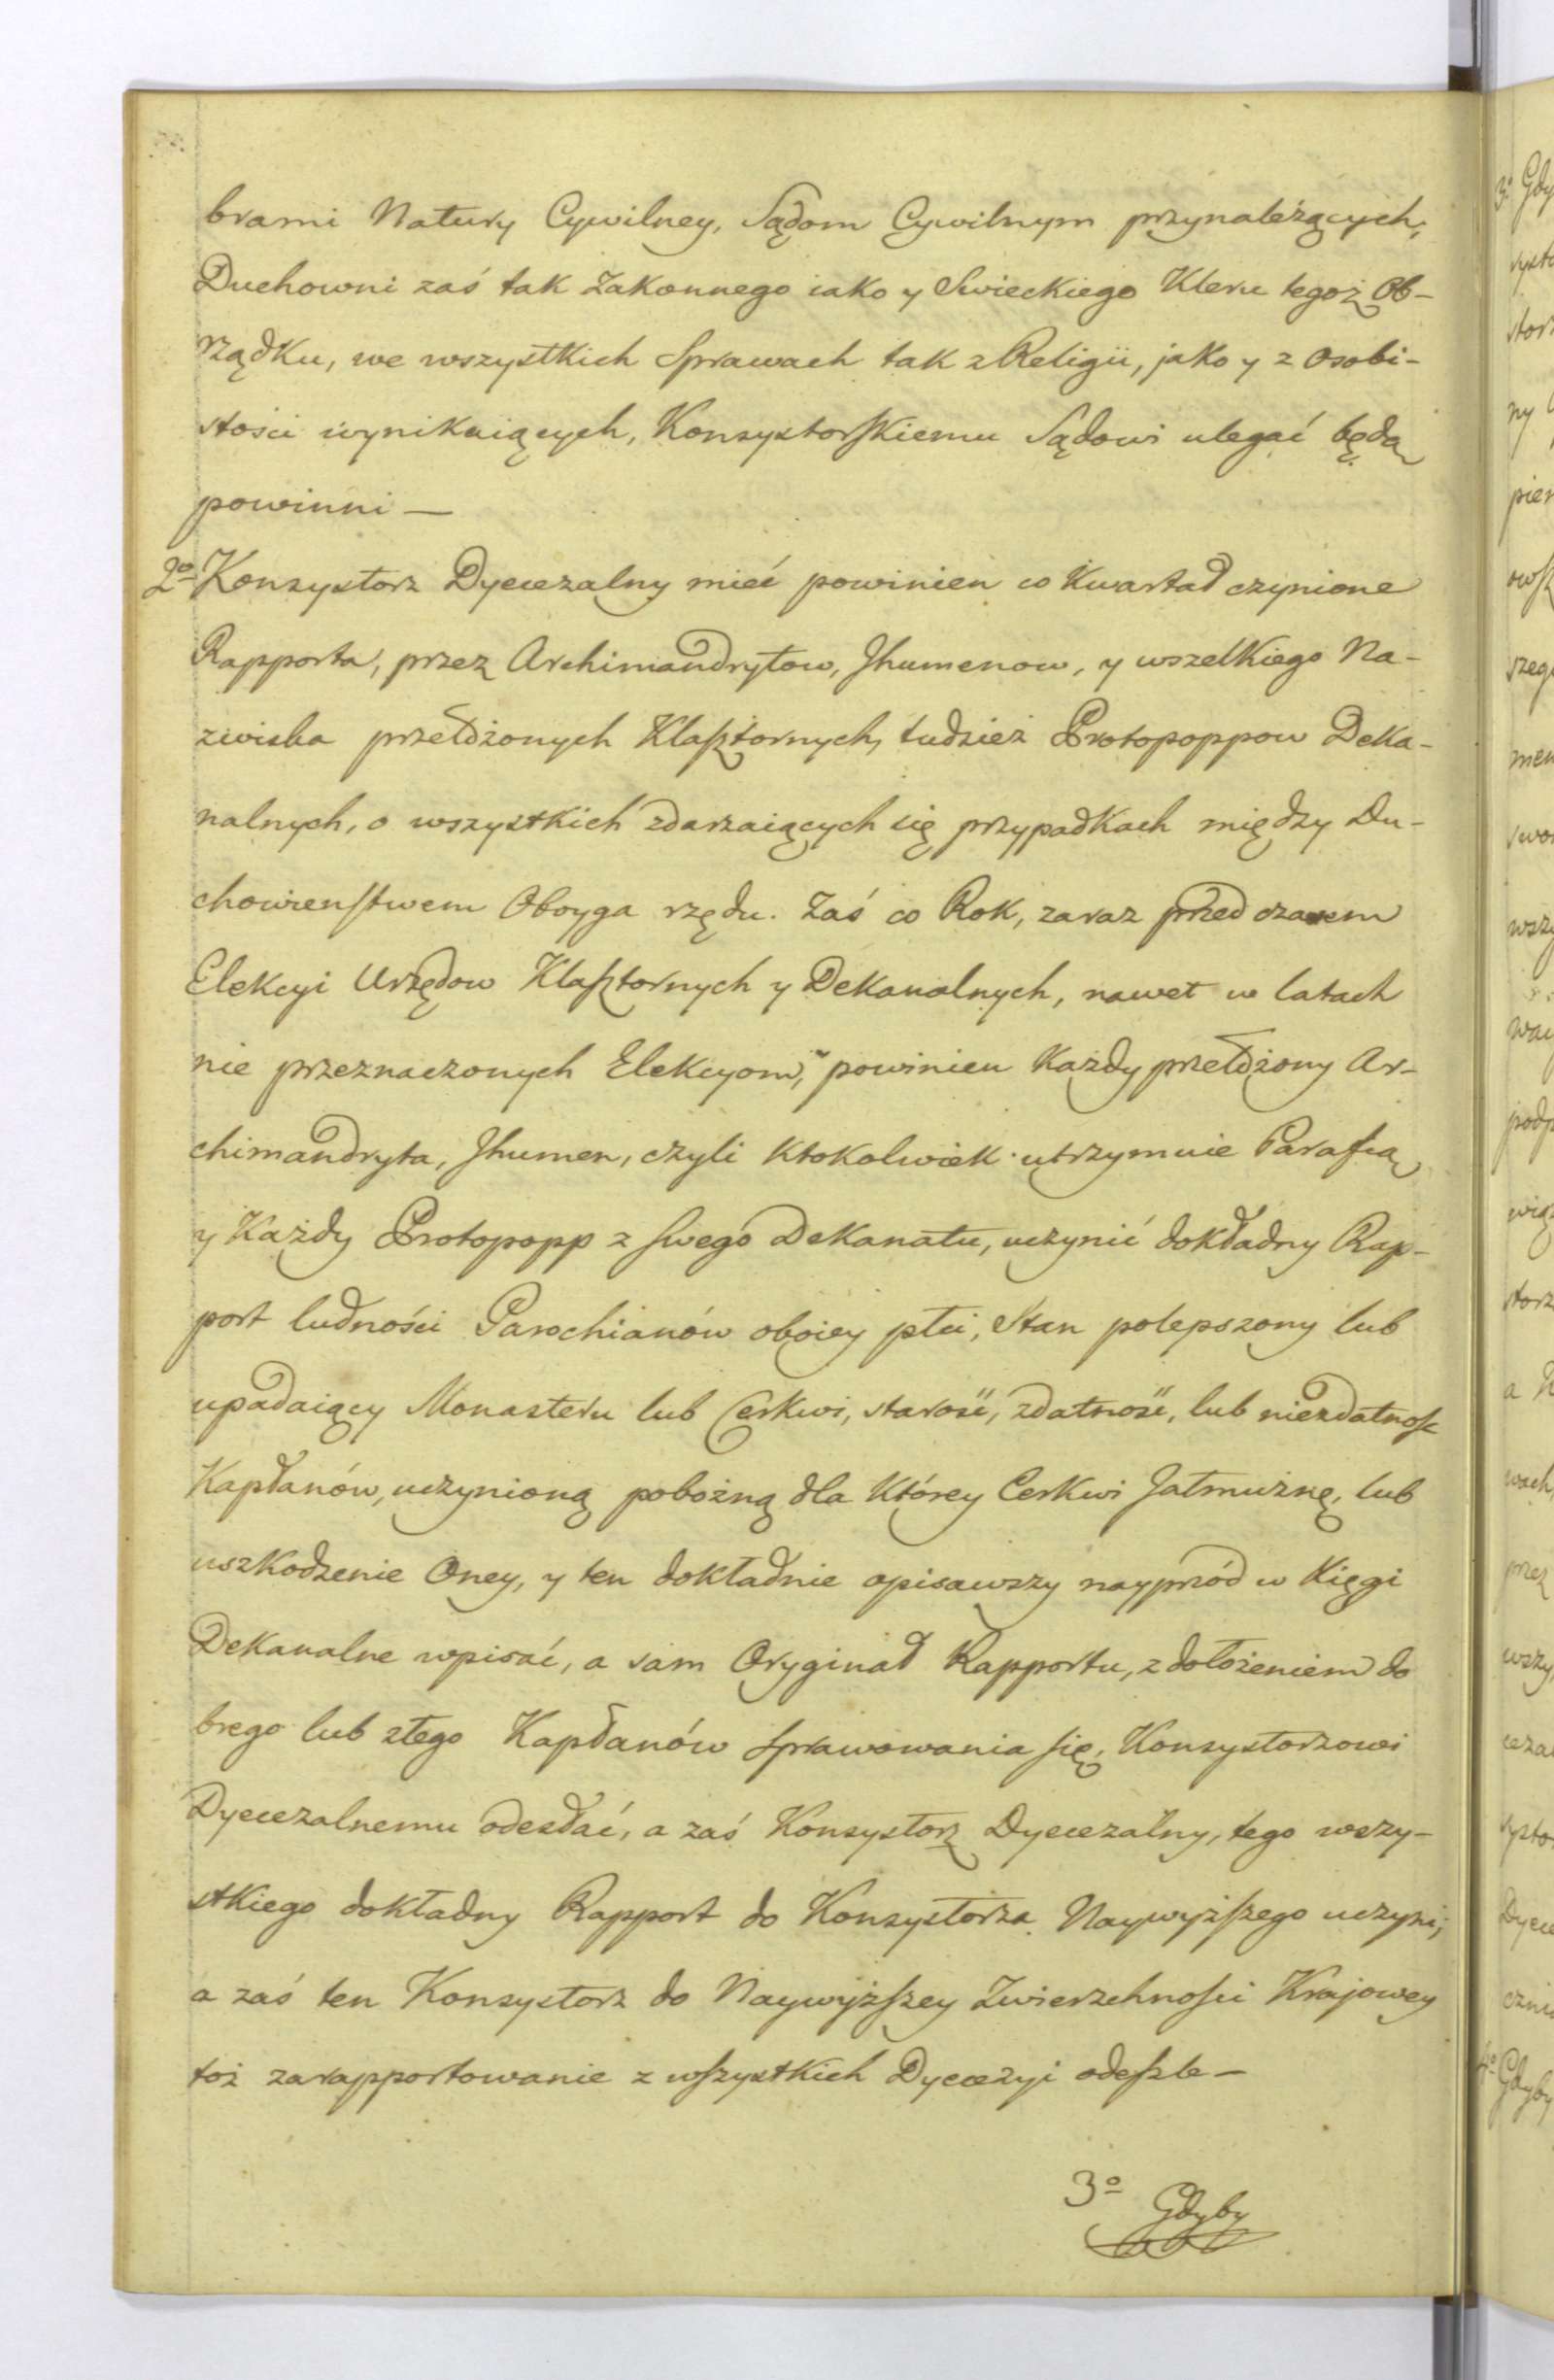 brami Natury Cywilney, Sądom Cywilnym przynależących,
Duchowni zaś tak Zakonnego iako y Swieckiego Kleru tegoż Ob-
rządku, we wszystkich Sprawach tak z Religii, jako y z osobi-
stości wynikaiących, Konsystorskiemu Sądowi ulegać będą
powinni —
2o Konsystorz Dyecezalny mieć powinien co Kwartał czynione
Rapporta, przez Archimandrytow, Jhumenow, y wszelkiego Na-
zwiska przełożonych Klasztornych, tudzież Protopoppow Deka-
nalnych, o wszystkich zdarzaiących się przypadkach między Du-
chowienstwem Oboyga rzędu. Zaś co Rok, zaraz przed czasem
Elekcyi Urzędow Klasztornych y Dekanalnych, nawet w latach
nie przeznaczonych Elekcyom, powinien Każdy przełożony Ar-
chimandryta, Jhumen, czyli Ktokolwiek utrzymuie Parafią,
y Każdy Protopopp z swego Dekanatu, uczynić dokładny Rap-
port ludności Parochianów oboiey płci, Stan polepszony lub
upadaiący Monasteru lub Cerkwi, starość, zdatność, lub niezdatnosc
Kapłanów, uczynioną pobożną dla Którey Cerkwi Jałmużnę, lub
uszkodzenie Oney, y ten dokładnie opisawszy nayprzód w Kięgi
Dekanalne wpisać, a sam Oryginał Rapportu, z dołożeniem do
brego lub złego Kapłanów sprawowania się, Konsystorzowi
Dyecezalnemu odesłać, a zaś Konsystorz Dyecezalny, tego wszy-
stkiego dokładny Rapport do Konsystorza Naywyższego uczyni;
a zaś ten Konsystorz do Naywyższey Zwierzchności Krajowey
toż zarapportowanie z wszystkich Dyecezyi odeszle —
3o Gdyby